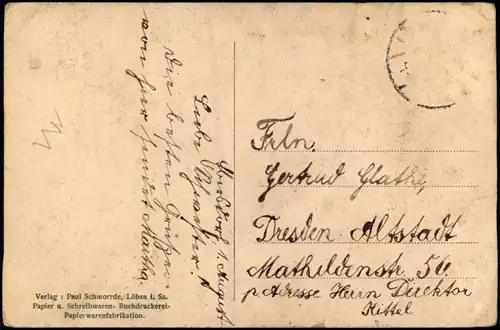 1. August
Liebe Schwester!
Die besten Grüße
von hier sendet Martha
Frln.
Gertrud Glathe,
Dresden Altstadt
Mathildenstr. 56.
p. Adresse Herrn Direktor
Kittel
Verlag : Paul Schmorrde, Löbau i. Sa.
Papier u. Schreibwaren- Buchdruckerei-
Papierwarenfabrikation.